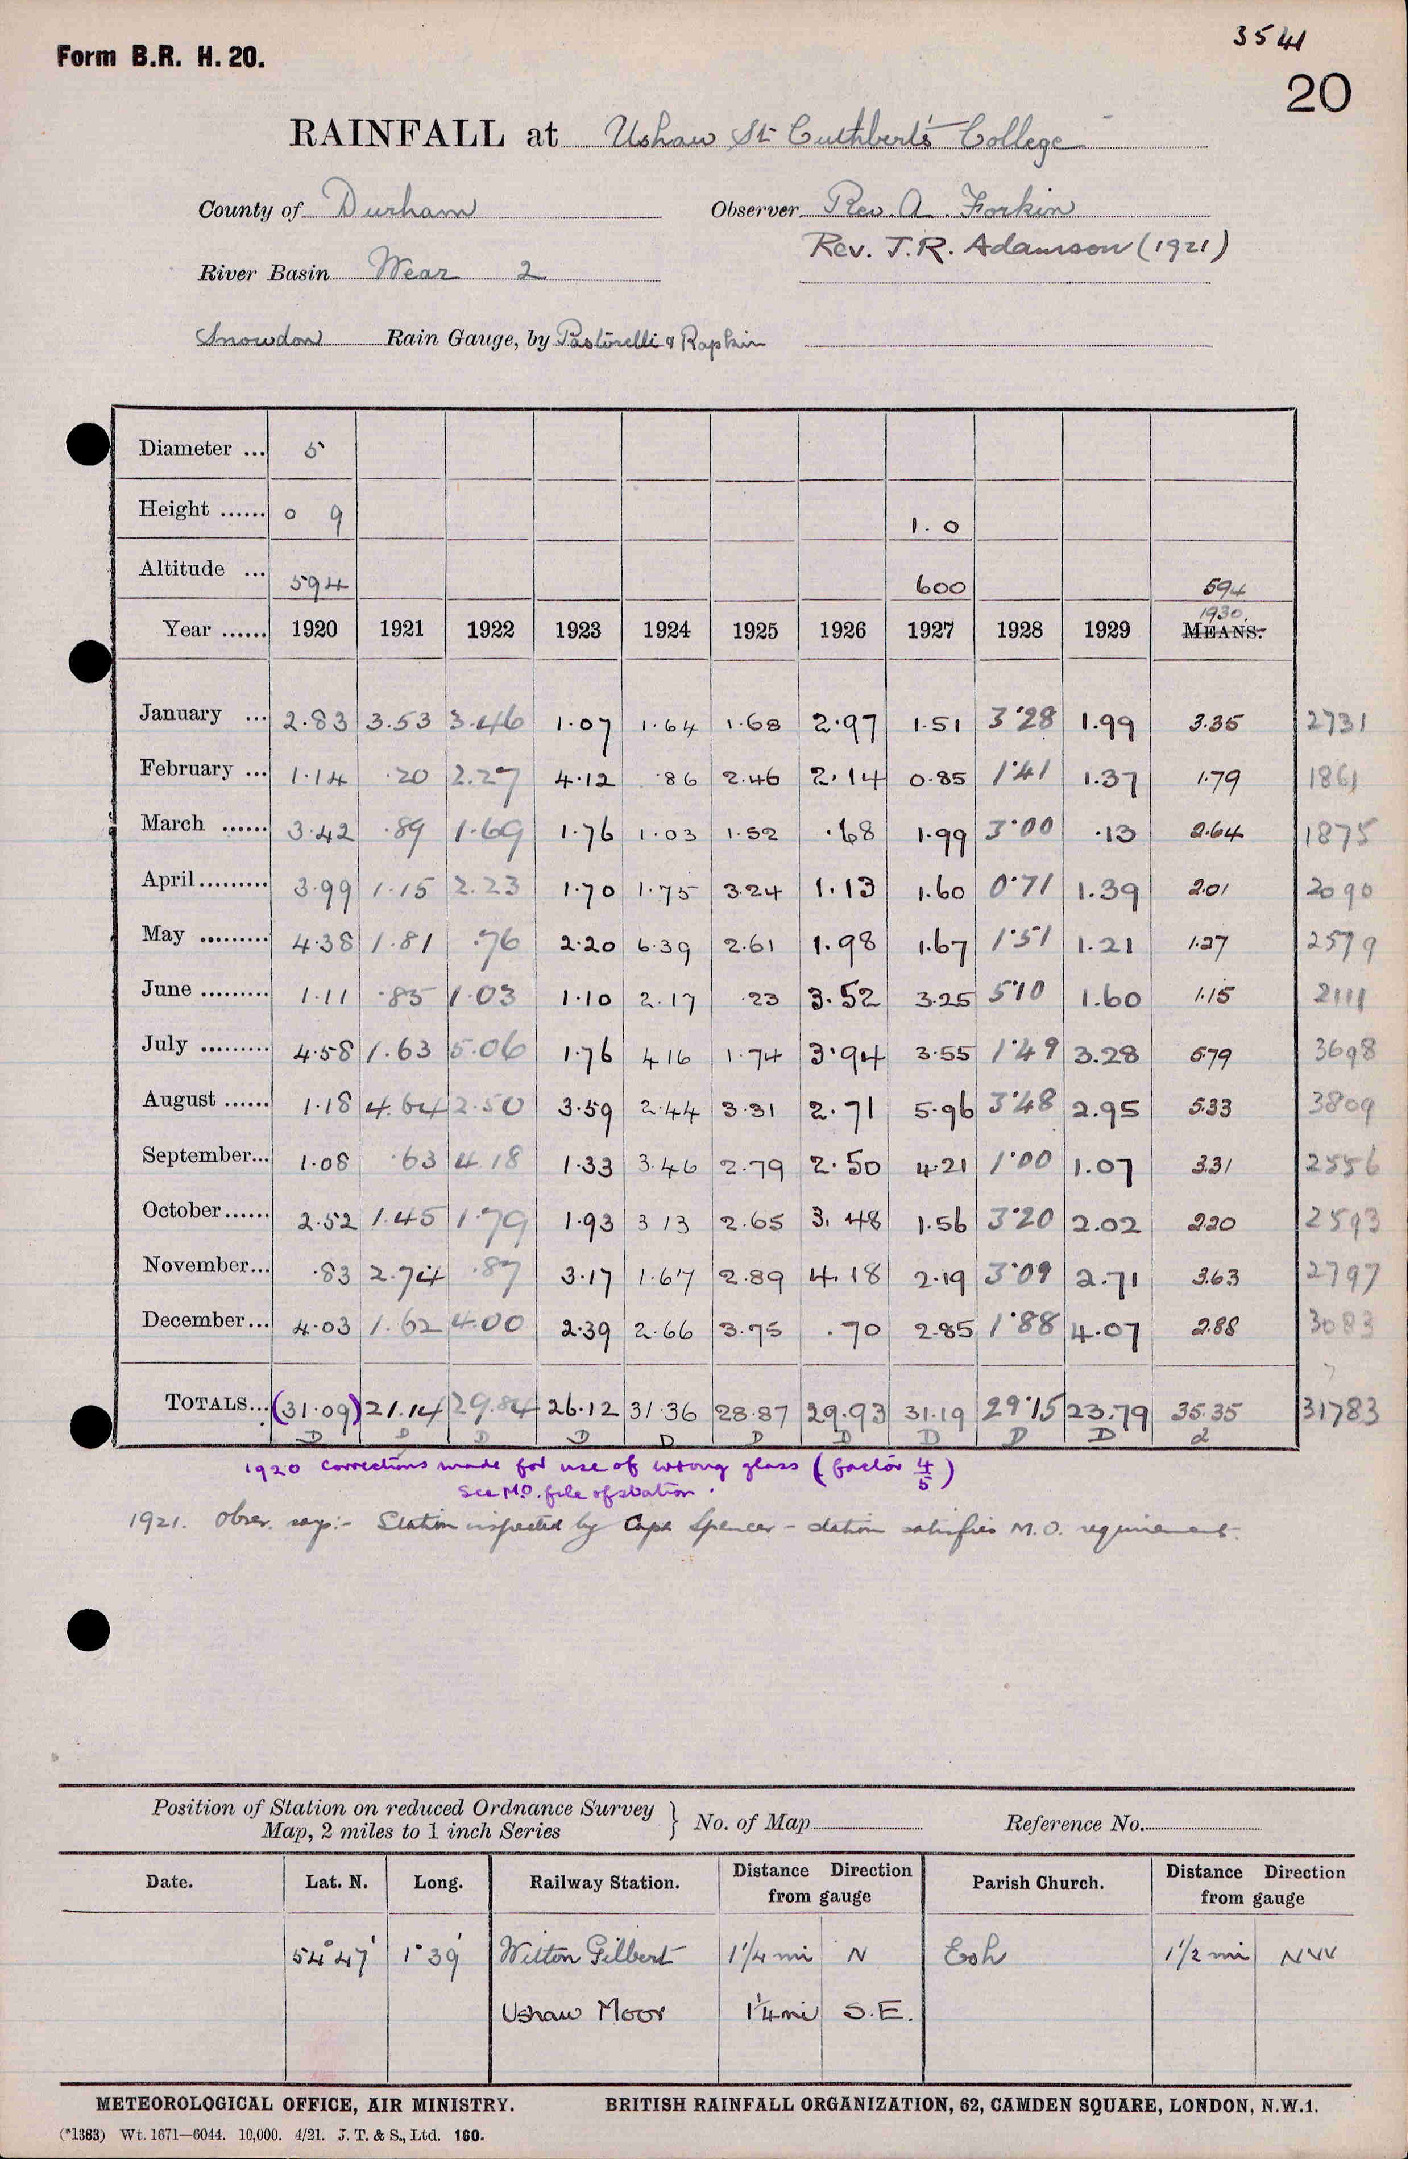 Form B.R. H. 20.
3541
20
RAINFALL at Ushaw St Cuthbert's College
County of Durham Observer Rev. A. Forkin
Rev. J.R. Adamson (1921)
River Basin Wear 2
Snowdon Rain Gauge, by Pastorelli & Rapkin
Diameter ... 5
Height ...... 0 9 1.0
Altitude ... 594 600 594
1930
Year ...... 1920 1921 1922 1923 1924 1925 1926 1927 1928 1929 MEANS.
January ... 2.83 3.53 3.46 1.07 1.64 1.68 2.97 1.51 3.28 1.99 3.35 2731
February ... 1.14 .20 2.27 4.12 .86 2.46 2.14 0.85 1.41 1.37 1.79 1861
March ...... 3.42 .89 1.69 1.76 1.03 1.52 .68 1.99 3.00 .13 2.64 1875
April......... 3.99 1.15 2.23 1.70 1.75 3.24 1.13 1.60 0.71 1.39 2.01 2090
May ......... 4.38 1.81 .76 2.20 6.39 2.61 1.98 1.67 1.51 1.21 1.27 2579
June ......... 1.11 .85 1.03 1.10 2.17 .23 3.52 3.25 5.10 1.60 1.15 2111
July ......... 4.58 1.63 5.06 1.76 4 16 1.74 3.94 3.55 1.49 3.28 5.79 3698
August ...... 1.18 4.64 2.50 3.59 2.44 3.31 2.71 5.96 3.48 2.95 5.33 3809
September... 1.08 .63 4.18 1.33 3.46 2.79 2.50 4.21 1.00 1.07 3.31 2556
October...... 2.52 1.45 1.79 1.93 3 13 2.65 3.48 1.56 3.20 2.02 2.20 2593
November... .83 2.74 .87 3.17 1.67 2.89 4.18 2.19 3.09 2.71 3.63 2797
December... 4.03 1.62 4.00 2.39 2.66 3.75 .70 2.85 1.88 4.07 2.88 3083
TOTALS... (31.09) 21.14 29.84 26.12 31.36 28.87 29.93 31.19 29.15 23.79 35.35 31783
D D D D D D D D D D d
1920 corrections made for use of wrong glass (factor 4/5)
See M.O. file of station.
1921. Obser. says:- Station inspected by Capt Spencer - station satisfies M.O. requirements.
Position of Station on reduced Ordnance Survey
Map, 2 miles to 1 inch Series } No. of Map Reference No.
Date. Lat. N. Long. Railway Station. Distance Direction from gauge Parish Church. Distance Direction from gauge
54° 47' 1° 39' Witton Gilbert 1 1/4 mi N Esh 1 1/2 mi NW
Ushaw Moor 1 1/4 mi S.E.
METEOROLOGICAL OFFICE, AIR MINISTRY. BRITISH RAINFALL ORGANIZATION, 62, CAMDEN SQUARE, LONDON, N.W.1.
(*1383) Wt. 1671—6044. 10,000. 4/21. J. T. & S., Ltd. 160.